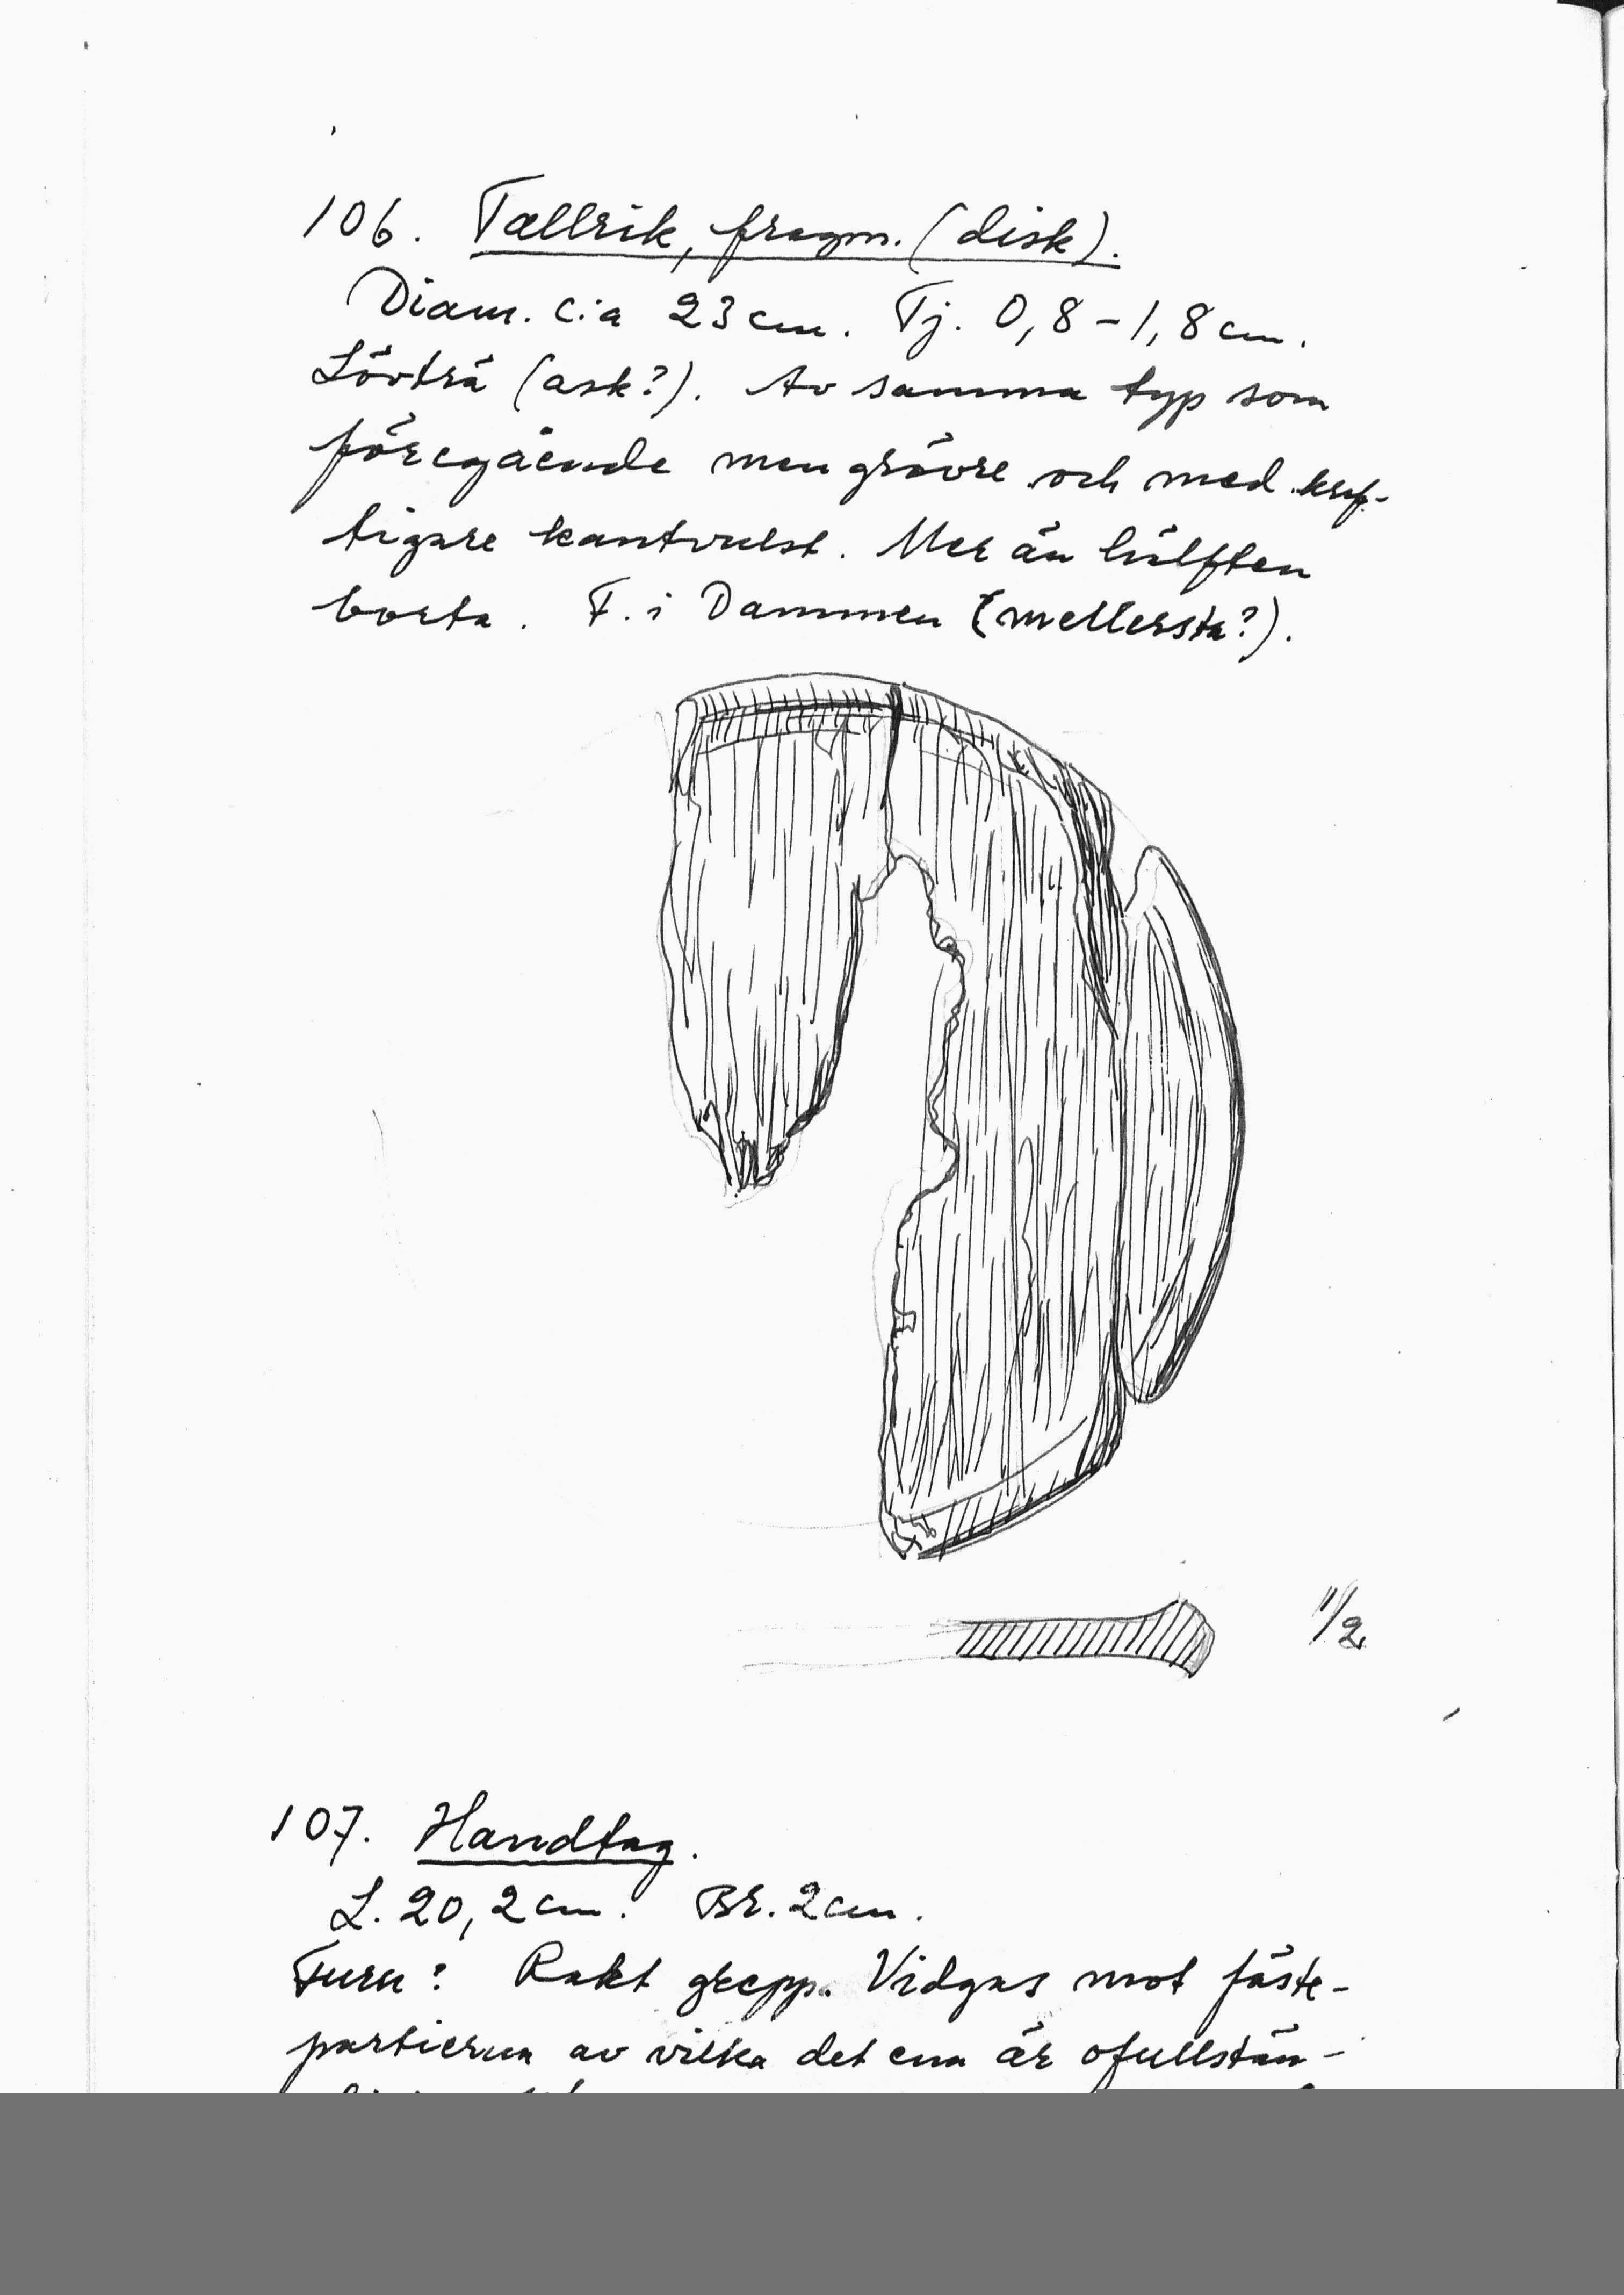 106. Tallrik, fragm. (disk).
Diam. c:a 23 cm. Tj. 0,8-1,8 cm.
Lövträ (ask?). Av samma typ som
föregående men grövre och med kraf-
tigare kantvulst. Mer än hälften
borta. F. i Dammen (mellersta?).
1/2
107. Handtag.
L. 20,2 cm. Br. 2 cm.
Furu? Rakt grepp. Vidgas mot fäste-
partierna av vilka det ena är ofullstän-